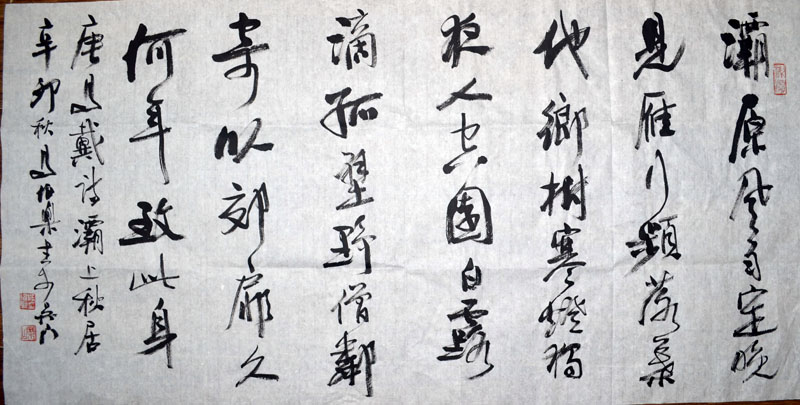 灞原风雨定晚
见雁行頻落葉
他鄉樹寒燈獨
夜人空園白露
滴孤壁野僧鄰
寄卧郊扉久
何年致此身
唐马戴詩灞上秋居
辛卯秋马伯樂書於